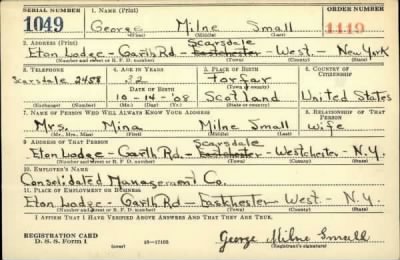 SERIAL NUMBER 1. NAME (Print) ORDER NUMBER
1049 George Milne Small 1119
(First) (Middle) (Last)
2. ADDRESS (Print) Scarsdale
Eton Lodge - Garth Rd - Eastchester - West - New York
(Number and street or R. F. D. number) (Town) (County) (State)
3. TELEPHONE 4. AGE IN YEARS 5. PLACE OF BIRTH 6. COUNTRY OF CITIZENSHIP
Scarsdale 2458 32 Forfar
DATE OF BIRTH (Town or county)
10-14-08 Scotland United States
(Exchange) (No.) (Mo.) (Day) (Yr.) (State or country)
7. NAME OF PERSON WHO WILL ALWAYS KNOW YOUR ADDRESS 8. RELATIONSHIP OF THAT PERSON
Mrs. Mina Milne Small Wife
(Mr., Mrs., Miss) (First) (Middle) (Last)
9. ADDRESS OF THAT PERSON Scarsdale
Eton Lodge - Garth Rd. - Eastchester - Westchester - N.Y.
(Number and street or R. F. D. number) (Town) (County) (State)
10. EMPLOYER'S NAME
Consolidated Management Co.
11. PLACE OF EMPLOYMENT OR BUSINESS
Eton Lodge - Garth Rd - Eastchester West - N.Y.
(Number and street or R. F. D. number) (Town) (County) (State)
I AFFIRM THAT I HAVE VERIFIED ABOVE ANSWERS AND THAT THEY ARE TRUE.
REGISTRATION CARD
D. S. S. Form 1 (over) 16-17105 George Milne Small
(Registrant's signature)